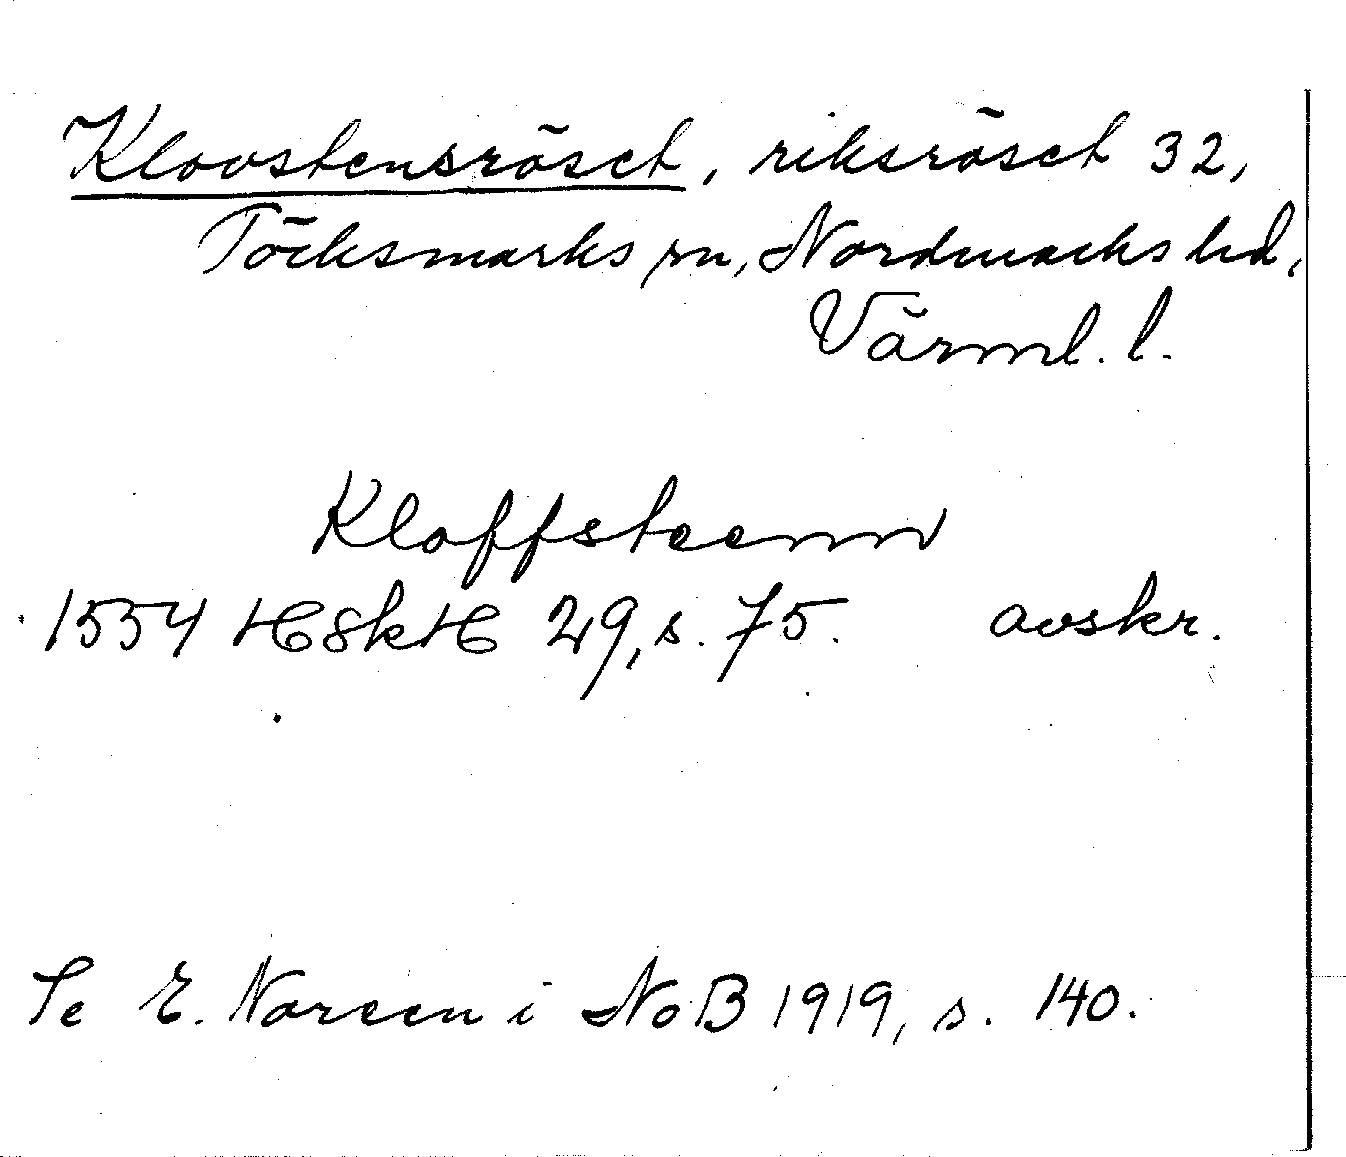 Klovstensröset, riksröset 32,
Töcksmarks sn, Nordmarks hd,
Värml. l.
Kloffsteenn
1554 HSkH 29, s. 75. avskr.
Se E. Noreen i NoB 1919, s. 140.